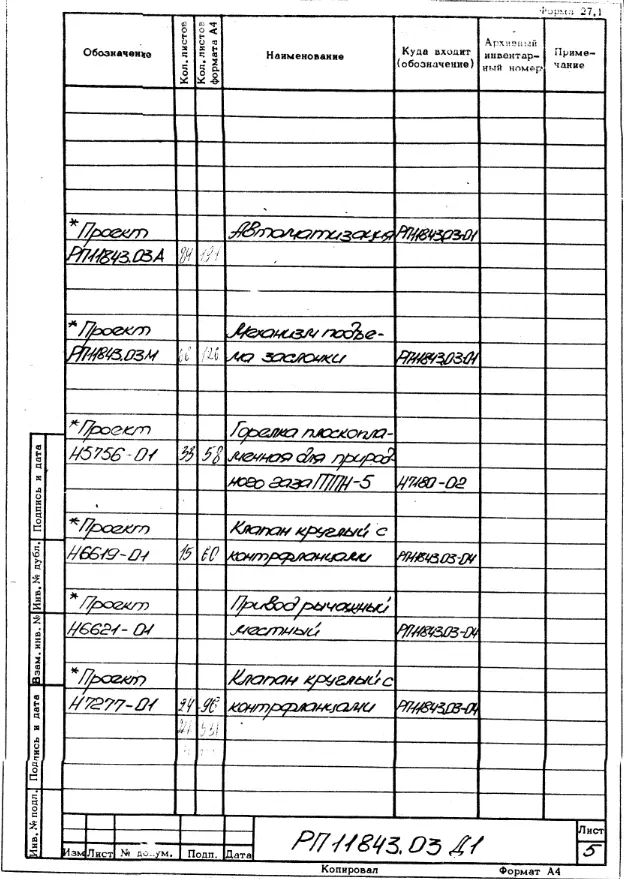 Форма 27.1
Обозначение Кол. листов Кол. листов формата А4 Наименование Куда входит (обозначение) Архивный инвентарный номер Примечание
*Проект Автоматизация РП11843.03-01
РП11843.03А 121
*Проект Механизм подъе-
РП11843.03М 66 126 ма заслонки РП11843.03-01
*Проект Горелка плоскопла-
Н5756-01 33 58 менная для природ-
ного газа ГППН-5 Н7180-02
*Проект Клапан круглый с
Н6619-01 15 60 контрфланцами РП11843.03-04
*Проект Привод рычажный
Н6621-01 местный РП11843.03-04
*Проект Клапан круглый с
Н7277-01 24 96 контрфланцами РП11843.03-04
Подпись и дата
Инв. № дубл.
Взам. инв. №
Подпись и дата
Инв. № подл.
Изм Лист № докум. Подп. Дата
РП11843.03 Д1
Лист
5
Копировал Формат А4